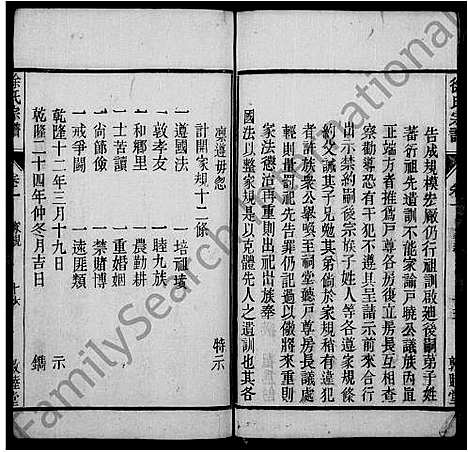 告成規模宏廠仍行祖訓啟廸後嗣弟子姓
蕃衍祖先遺訓不能家諭戸曉公議族內宜
正端方者推爲戸尊各房從立房長互相查
察勸導恐有干犯不遵具呈請示前來合行
出示禁約嗣後宗族子姓人等各遵家規條
約父誡其子兄勉其弟倘於家規稍有違犯
者許族衆公舉喚至祠堂聽戸尊房長議處
輕則罰到祖先告罪仍記過以儆將來重則
家法懲治再重則出祀出族奉
國法以整家規是以克體先人之遺訓也其各
凜遵毋忽 特示
計開家規十二條
一遵國法 一培祖坟
一敦孝友 一睦九族
一和鄉里 一農勤耕
一士苦讀 一重婚姻
一尚節儉 一禁賭博
一戒爭鬪 一遠匪類
乾隆十二年三月十九日 示
乾隆二十四年仲冬月吉日 鐫
徐氏宗譜 卷一 敦睦堂
徐氏宗譜 卷一 敦睦堂
FamilySearch International